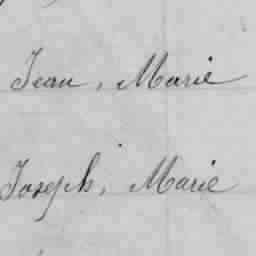 Jean, Marie
Joseph, Marie